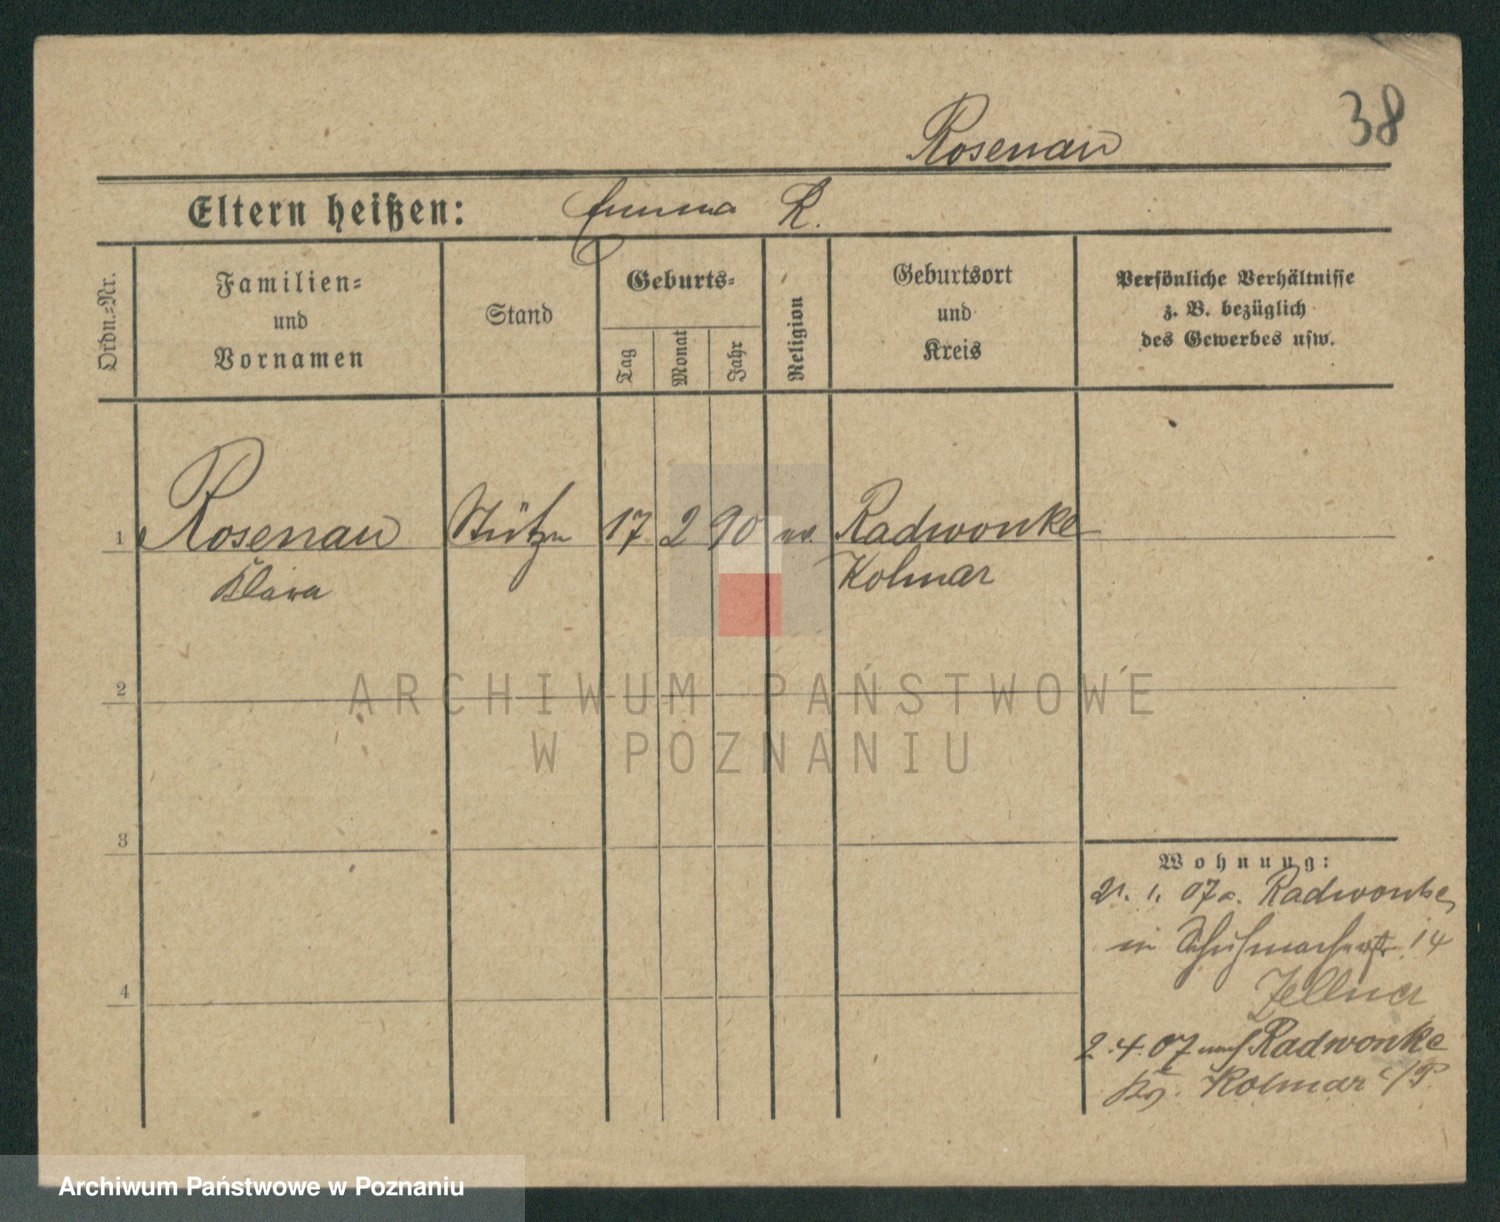 38
Rosenau
Eltern heißen: Emma R.
Ordn.-Nr.
Familien-
und
Vornamen
Stand
Geburts-
Tag
Monat
Jahr
Religion
Geburtsort
und
Kreis
Persönliche Verhältnisse
z. B. bezüglich
des Gewerbes usw.
1 Rosenau Stütze 17 2 90 ev. Radwonke
Klara Kolmar
2
3
4
Wohnung:
21. 1. 07 Radwonke
in Schuhmacherstr. 14
Zellner
2.4.07 nach Radwonke
Kr. Kolmar i/P
ARCHIWUM PAŃSTWOWE
W POZNANIU
Archiwum Państwowe w Poznaniu